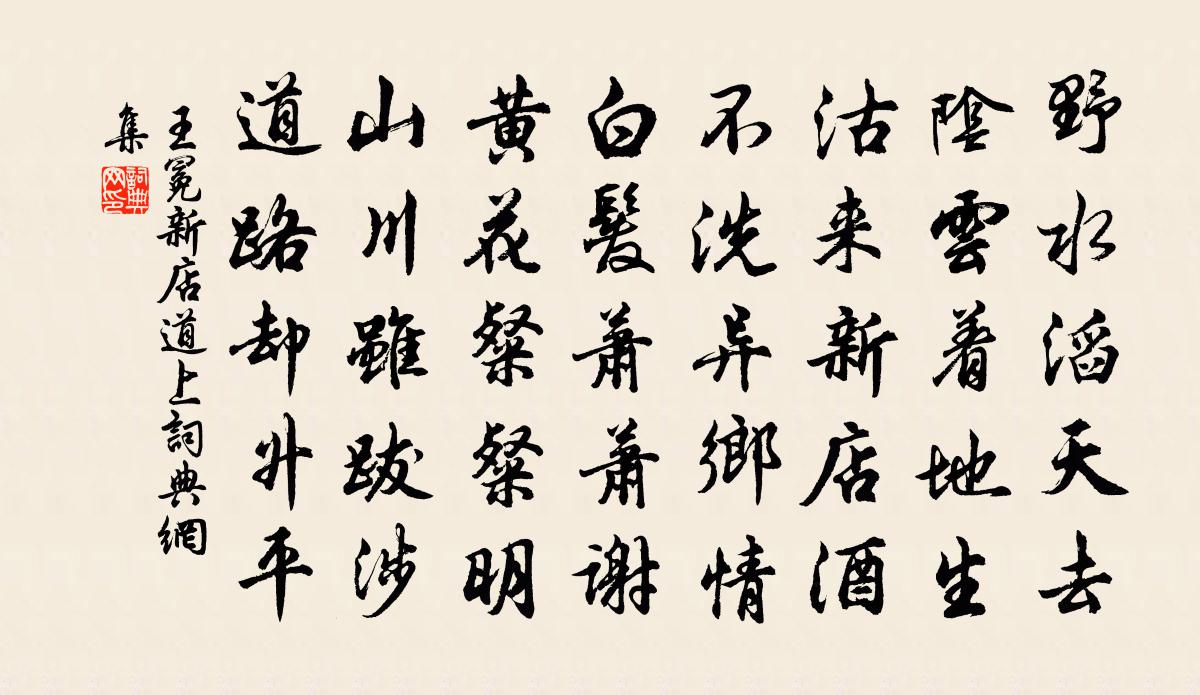 野水滔天去
陰雲着地生
沽来新店酒
不洗异鄉情
白髮蕭蕭谢
黄花粲粲明
山川雖跋涉
道路却升平
王冕新店道上詞典網
集
詞典
网印